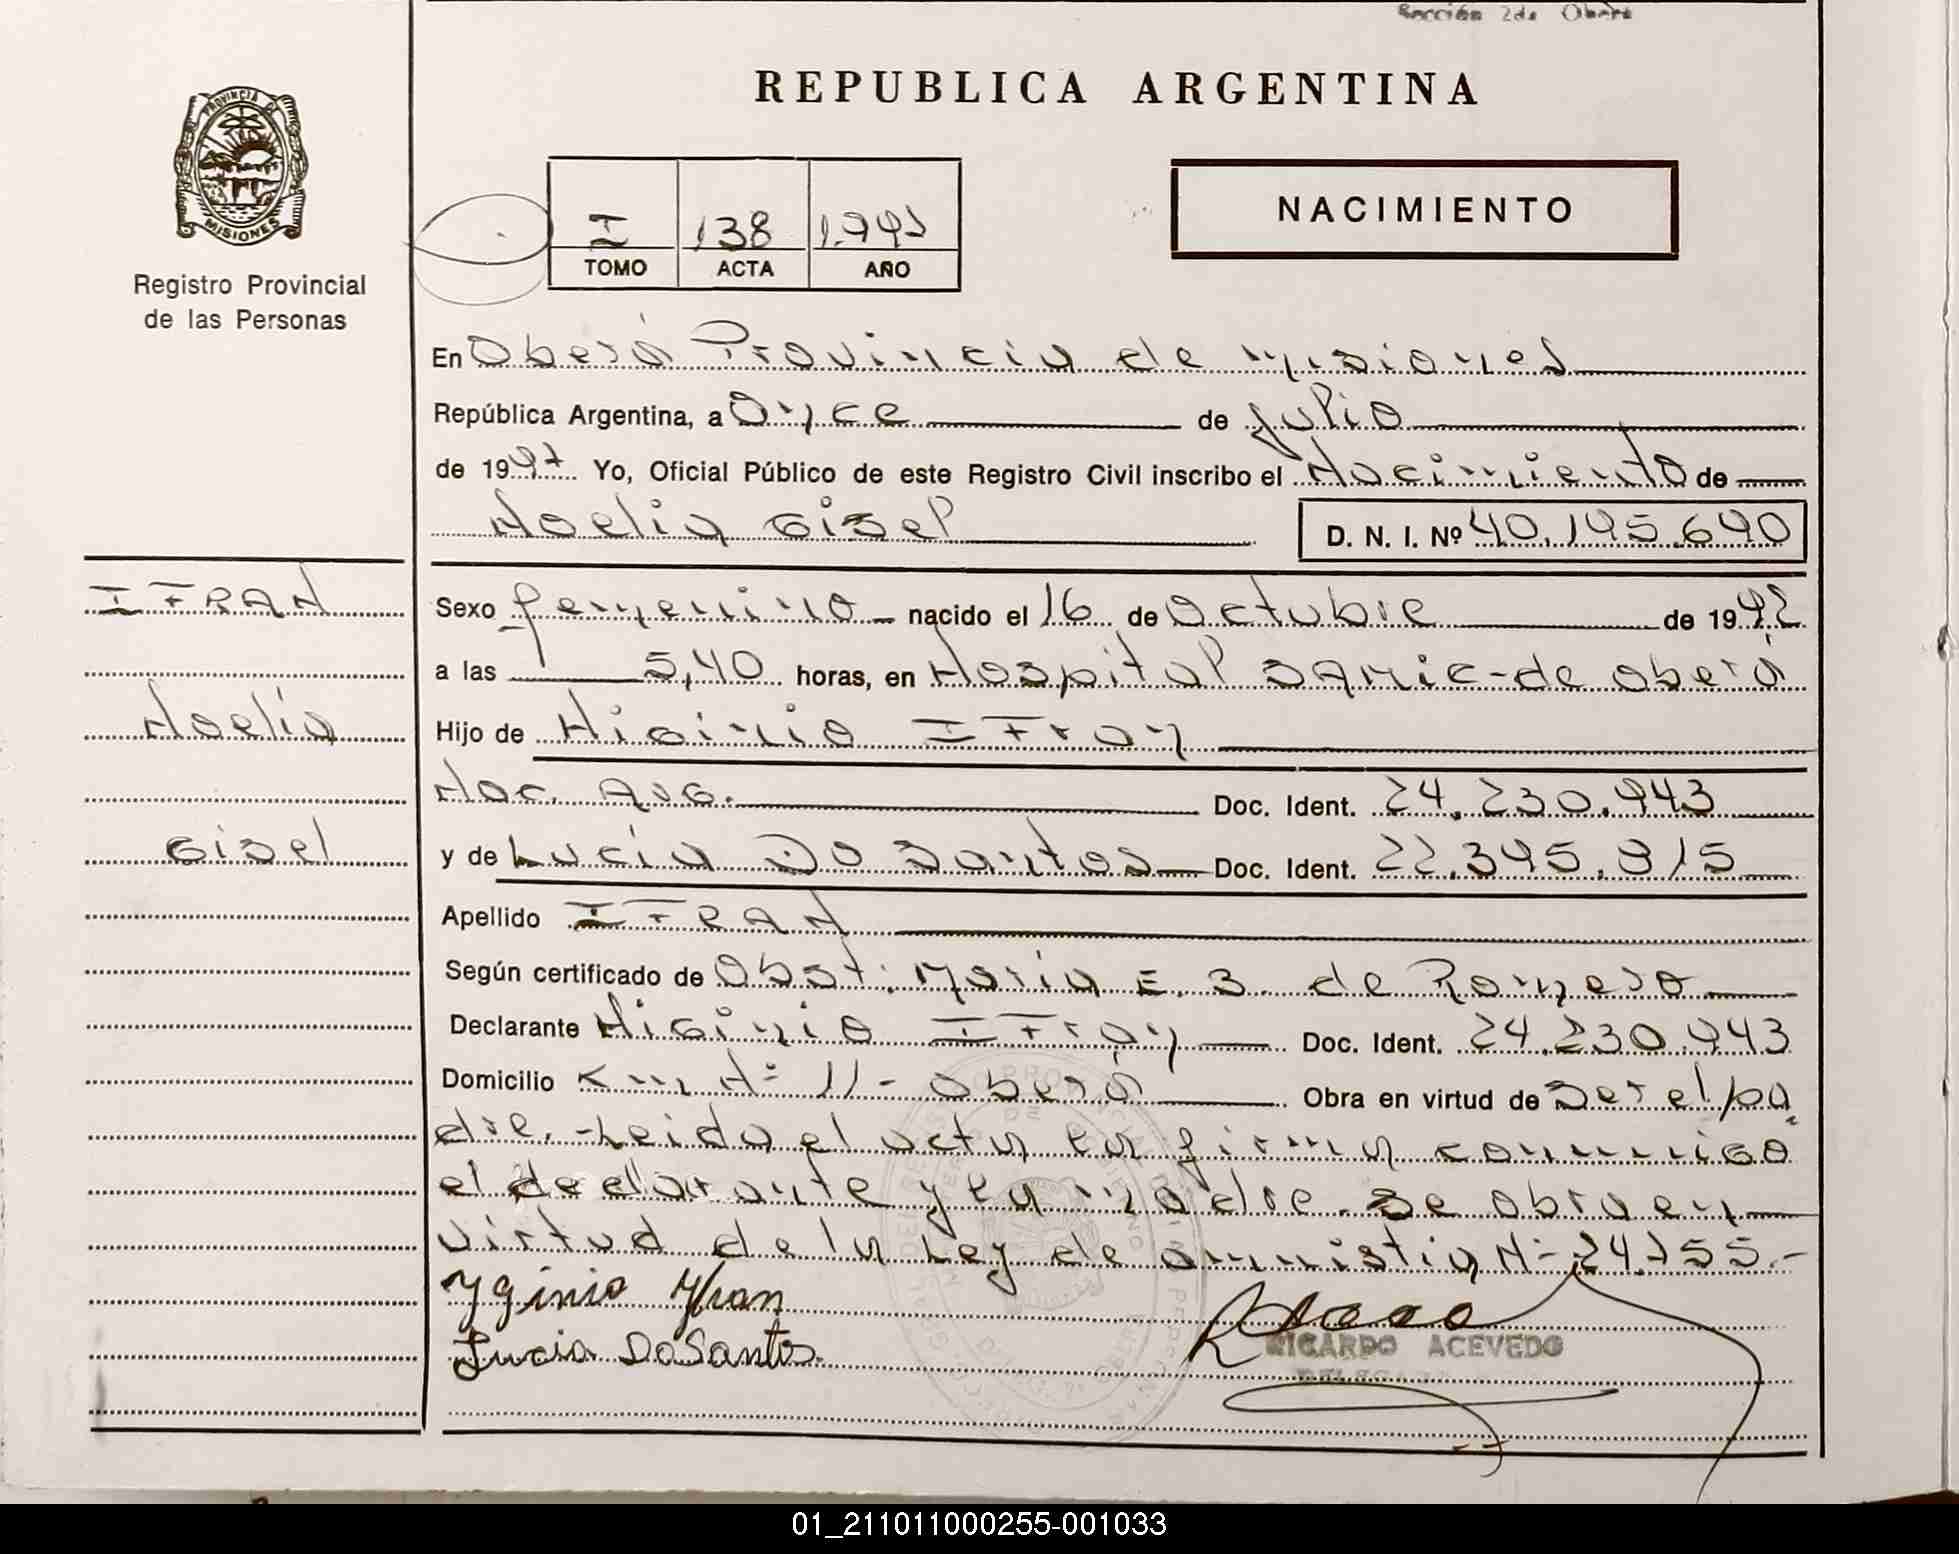 Sección 2da Oberá
REPUBLICA ARGENTINA
PROVINCIA DE
MISIONES
Registro Provincial
de las Personas
I 138
TOMO ACTA AÑO
NACIMIENTO
En Oberá Provincia de Misiones
República Argentina, a Once de Julio
de 1997 Yo, Oficial Público de este Registro Civil inscribo el Nacimiento de
Noelia Gisel D. N. I. Nº 40.195.690
IFRAN
Noelia
Gisel
Sexo femenino nacido el 16 de Octubre de 1992
a las 5,40 horas, en Hospital SAMIC-de Oberá
Hijo de Higinio IFran
Nac. Arg. Doc. Ident. 24.230.943
y de Lucía Do Santos Doc. Ident. 22.395.915
Apellido IFRAN
Según certificado de Obst: María E. B. de Romero
Declarante Higinio IFran Doc. Ident. 24.230.943
Domicilio Km Nº 11- Oberá Obra en virtud de Ser el pa
dre.-Leida el acta la firman conmigo
el declarante y la madre. Se obra en
virtud de la Ley de amnistia Nº 24.755.-
Yginio Yfran
Lucia DoSantos.
RICARDO ACEVEDO
01_211011000255-001033